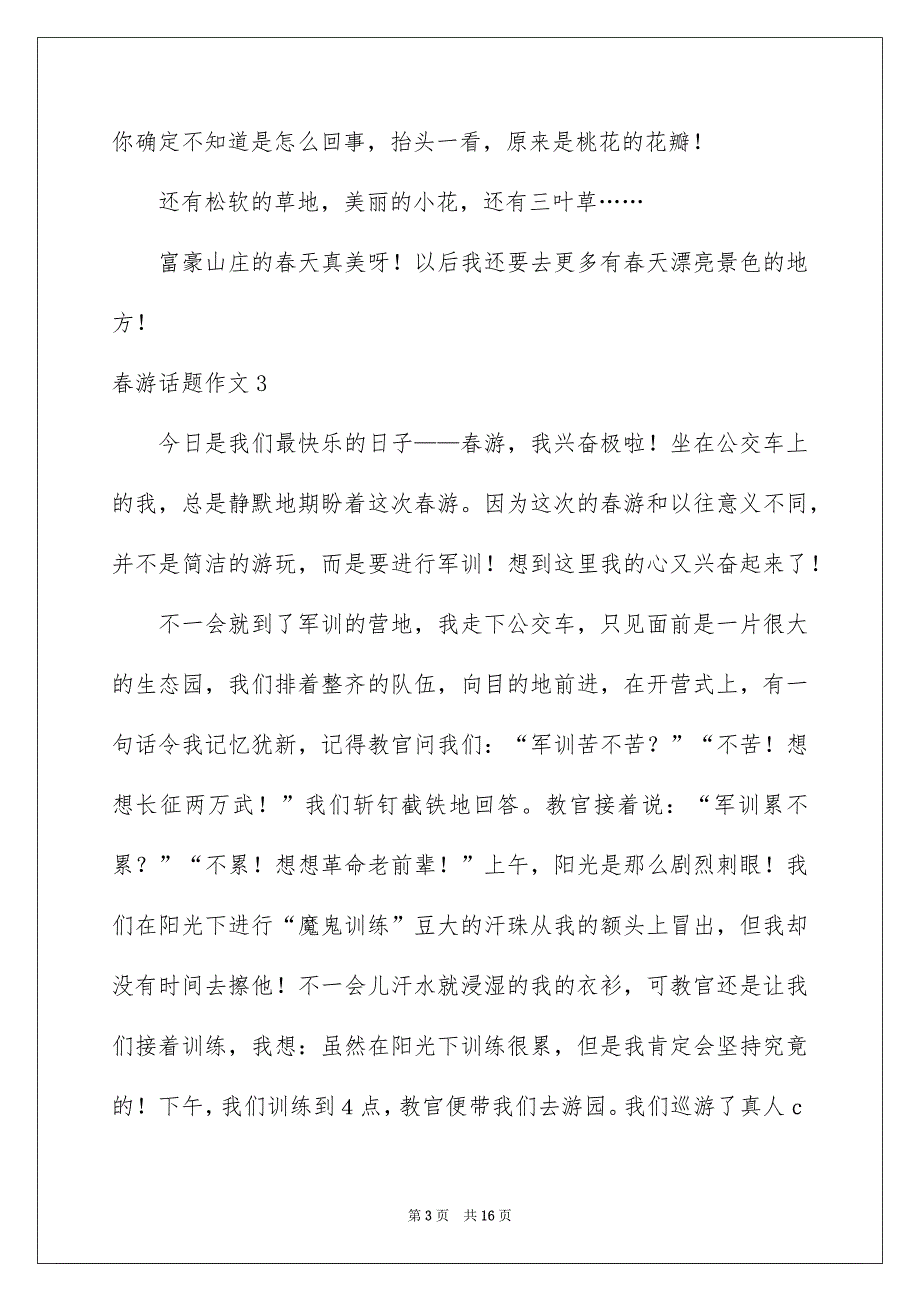 你确定不知道是怎么回事，抬头一看，原来是桃花的花瓣！
还有松软的草地，美丽的小花，还有三叶草……
富豪山庄的春天真美呀！以后我还要去更多有春天漂亮景色的地
方！
春游话题作文 3
今日是我们最快乐的日子——春游，我兴奋极啦！坐在公交车上
的我，总是静默地期盼着这次春游。因为这次的春游和以往意义不同，
并不是简洁的游玩，而是要进行军训！想到这里我的心又兴奋起来了！
不一会就到了军训的营地，我走下公交车，只见面前是一片很大
的生态园，我们排着整齐的队伍，向目的地前进，在开营式上，有一
句话令我记忆犹新，记得教官问我们：“军训苦不苦？”“不苦！想
想长征两万武！”我们斩钉截铁地回答。教官接着说：“军训累不
累？”“不累！想想革命老前辈！”上午，阳光是那么剧烈刺眼！我
们在阳光下进行“魔鬼训练”豆大的汗珠从我的额头上冒出，但我却
没有时间去擦他！不一会儿汗水就浸湿的我的衣衫，可教官还是让我
们接着训练，我想：虽然在阳光下训练很累，但是我肯定会坚持究竟
的！下午，我们训练到 4 点，教官便带我们去游园。我们巡游了真人 c
第 3 页 共 16 页